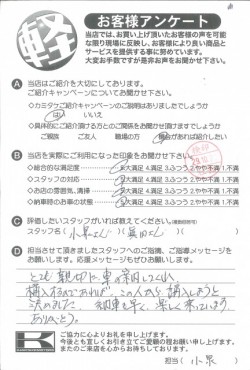 軽
お客様アンケート
当店では、お買い上げ頂いたお客様の声を可能
な限り現場に反映し、お客様により良い商品と
サービスを提供する事に努めています。
大変お手数ですが是非お声をお聞かせ下さい。
Ⓐ 当店はご紹介を大切にしております。
ご紹介キャンペーンについてお聞かせ下さい。
◇カミタケご紹介キャンペーンのご説明はありましたでしょうか
はい いいえ
◇具体的にご紹介頂ける方とのご関係をお聞かせ頂けますでしょうか
ご親族 ご友人 職場の方 機会があれば紹介したい
Ⓑ 当店を実際にご利用になった印象をお聞かせ下さい。
◇総合的な満足度 5.大満足 4.満足 3.ふつう 2.やや不満 1.不満
◇スタッフの対応 5.大満足 4.満足 3.ふつう 2.やや不満 1.不満
◇お店の雰囲気、清掃 5.大満足 4.満足 3.ふつう 2.やや不満 1.不満
◇納車時のお車の状態 5.大満足 4.満足 3.ふつう 2.やや不満 1.不満
Ⓒ 評価したいスタッフがいれば教えてください。
スタッフ名（小泉さん）（
Ⓓ 担当させて頂きましたスタッフへのご指摘、ご指導メッセージを
お願いします。応援メッセージもぜひお願いします。
とても親切に車の案内してくれ
購入するのであれば、この人から購入しようと
決めれた。納車も早く、楽しく来ています。
ありがとう。
K
ご協力に心よりお礼を申し上げます。
今後とも宜しくお引き立てご愛顧の程お願い申し上げます。
またのご来店を心からお待ちしております。
担当（小泉）